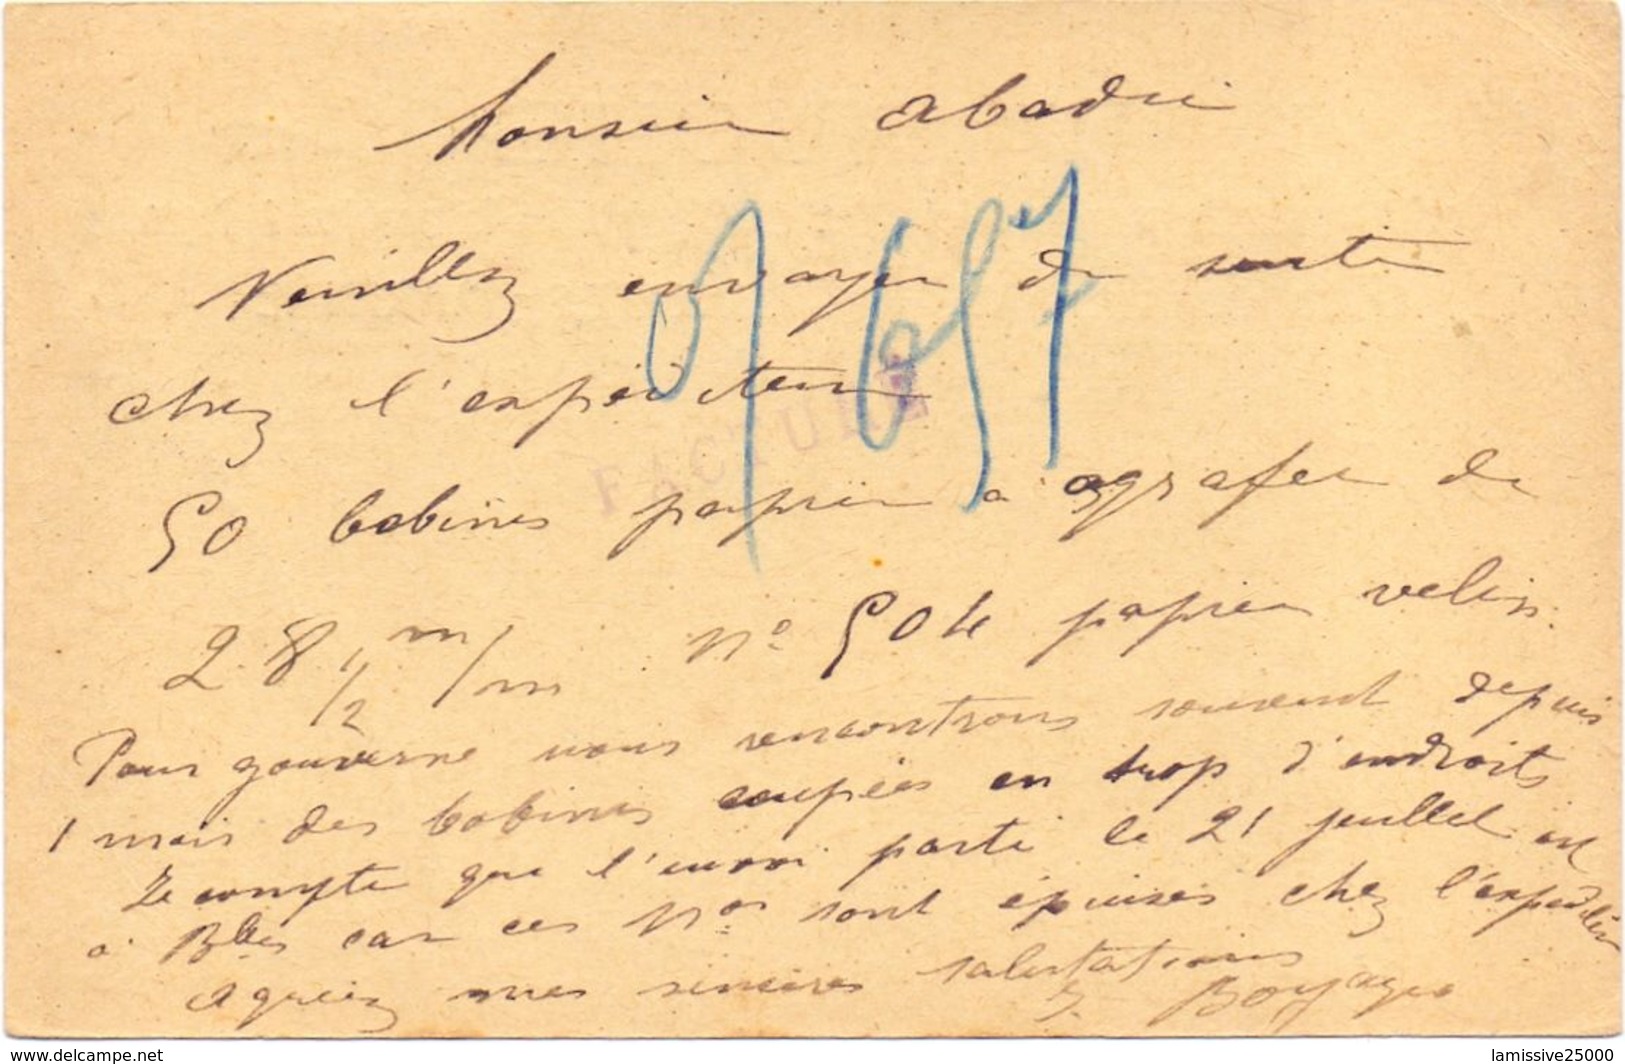 Monsieur Abadie
Veuillez envoyer de suite
chez l'expéditeur
FACTURE
50 bobines papier à agrafer de
28 1/2 m/m Nº 504 papier velin.
Pour gouverne nous rencontrons souvent depuis
1 mois des bobines coupées en trop d'endroits
Je compte que l'envoi parti le 21 juillet est
à Bles car ces Nos sont épuisés chez l'expéditeur
Agréez mes sincères salutations
lamissive25000
www.delcampe.net